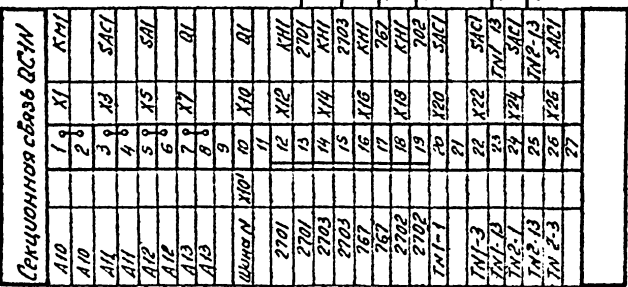 Секционная связь QC1N
A10 1 X1 KM1
A10 2
A11 3 X3 SAC1
A11 4
A12 5 X5 SA1
A12 6
A13 7 X7 Q1
A13 8
9
Шина N X10' 10 X10 Q1
11
2701 12 X12 KM1
2701 13 2701
2703 14 X14 KM1
2703 15 2703
767 16 X16 KM1
767 17 767
2702 18 X18 KM1
2702 19 702
TN1-1 20 X20 SAC1
21
TN1-3 22 X22 SAC1
TN1-13 23 TN1 13
TN2-1 24 X24 SAC1
TN2-13 25 TN2-13
TN2-3 26 X26 SAC1
27